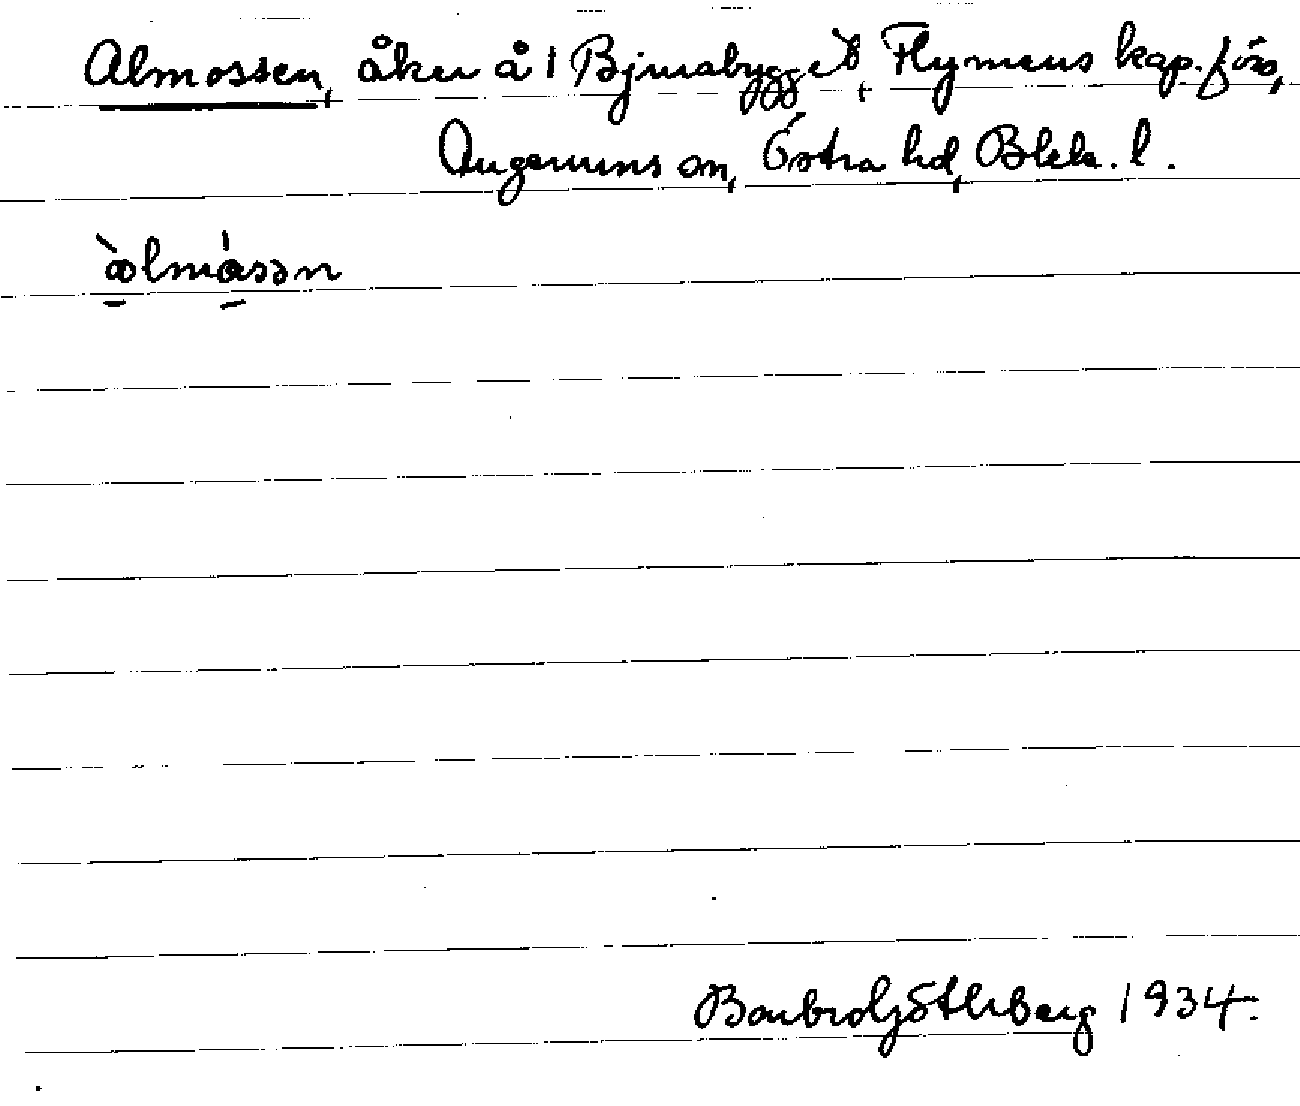 Almossen, åker å 1 Björsabygget, Flymens kap.förs,
Augerums sn, Östra hd, Blek. l.
àlmåsən
Götlberg 1934.